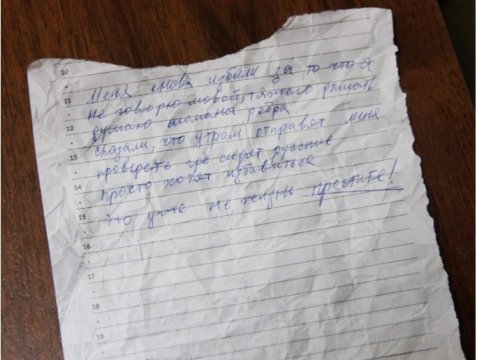 10
11
12
13
14
15
16
17
18
19
Меня снова избили за то что я
не говорю мовой, тяжело дышать
думаю сломано ребро
сказали, что утром отправят меня
проверять где сидят русские
просто хотят избавиться
Это уже не жизнь простите!